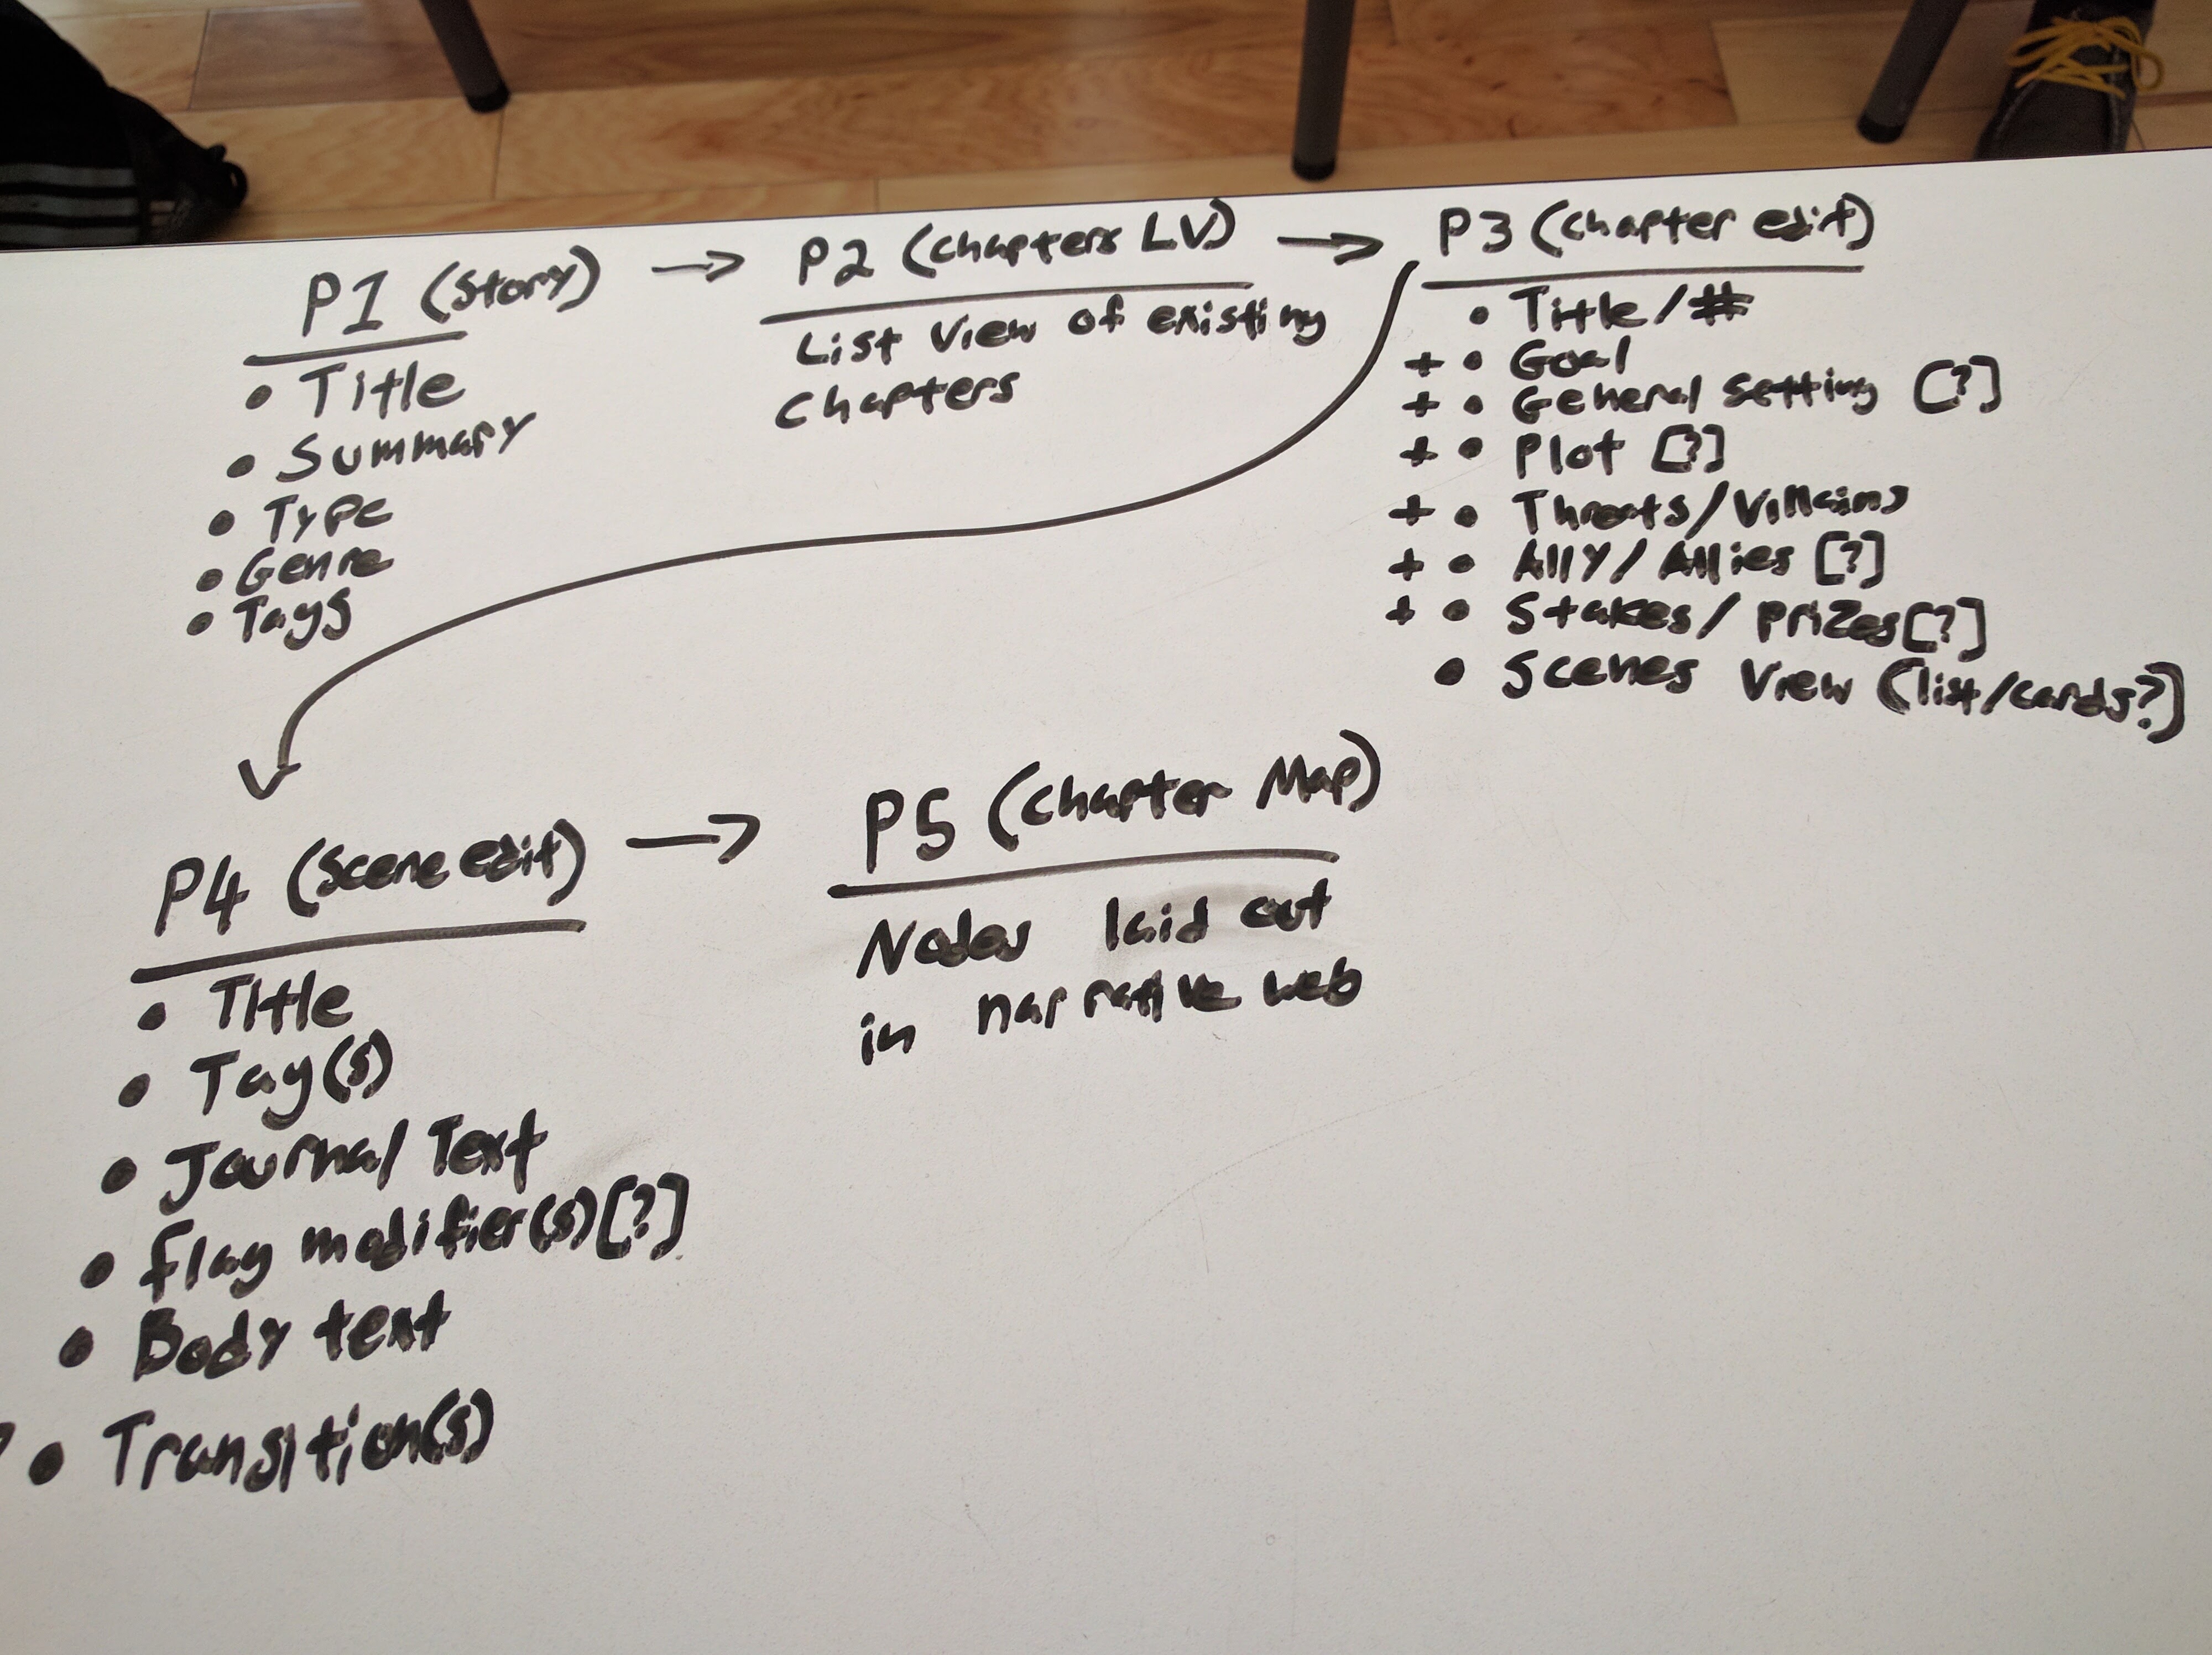 P1 (Story) → P2 (Chapters LV) → P3 (Chapter edit)
• Title
• Summary
• Type
• Genre
• Tags
List View of existing
Chapters
• Title/#
+ • Goal
+ • General Setting [?]
+ • Plot [?]
+ • Threats/Villains
+ • Ally/Allies [?]
+ • Stakes/Prizes[?]
• Scenes View (list/cards?)
P4 (Scene edit) → P5 (Chapter Map)
• Title
• Tag(s)
• Journal Text
• flag modifier(s)[?]
• Body text
• Transition(s)
Nodes laid out
in narrative web